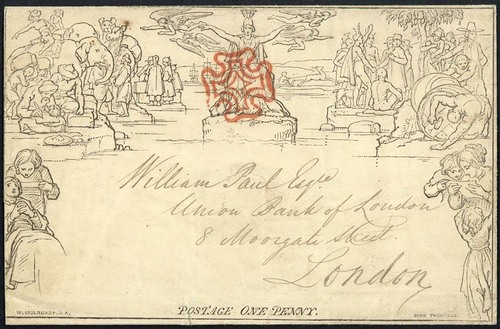 William Paul Esqre
Union Bank of London
8 Moorgate Street.
London
POSTAGE ONE PENNY.
W. MULREADY. R.A.
JOHN THOMPSON